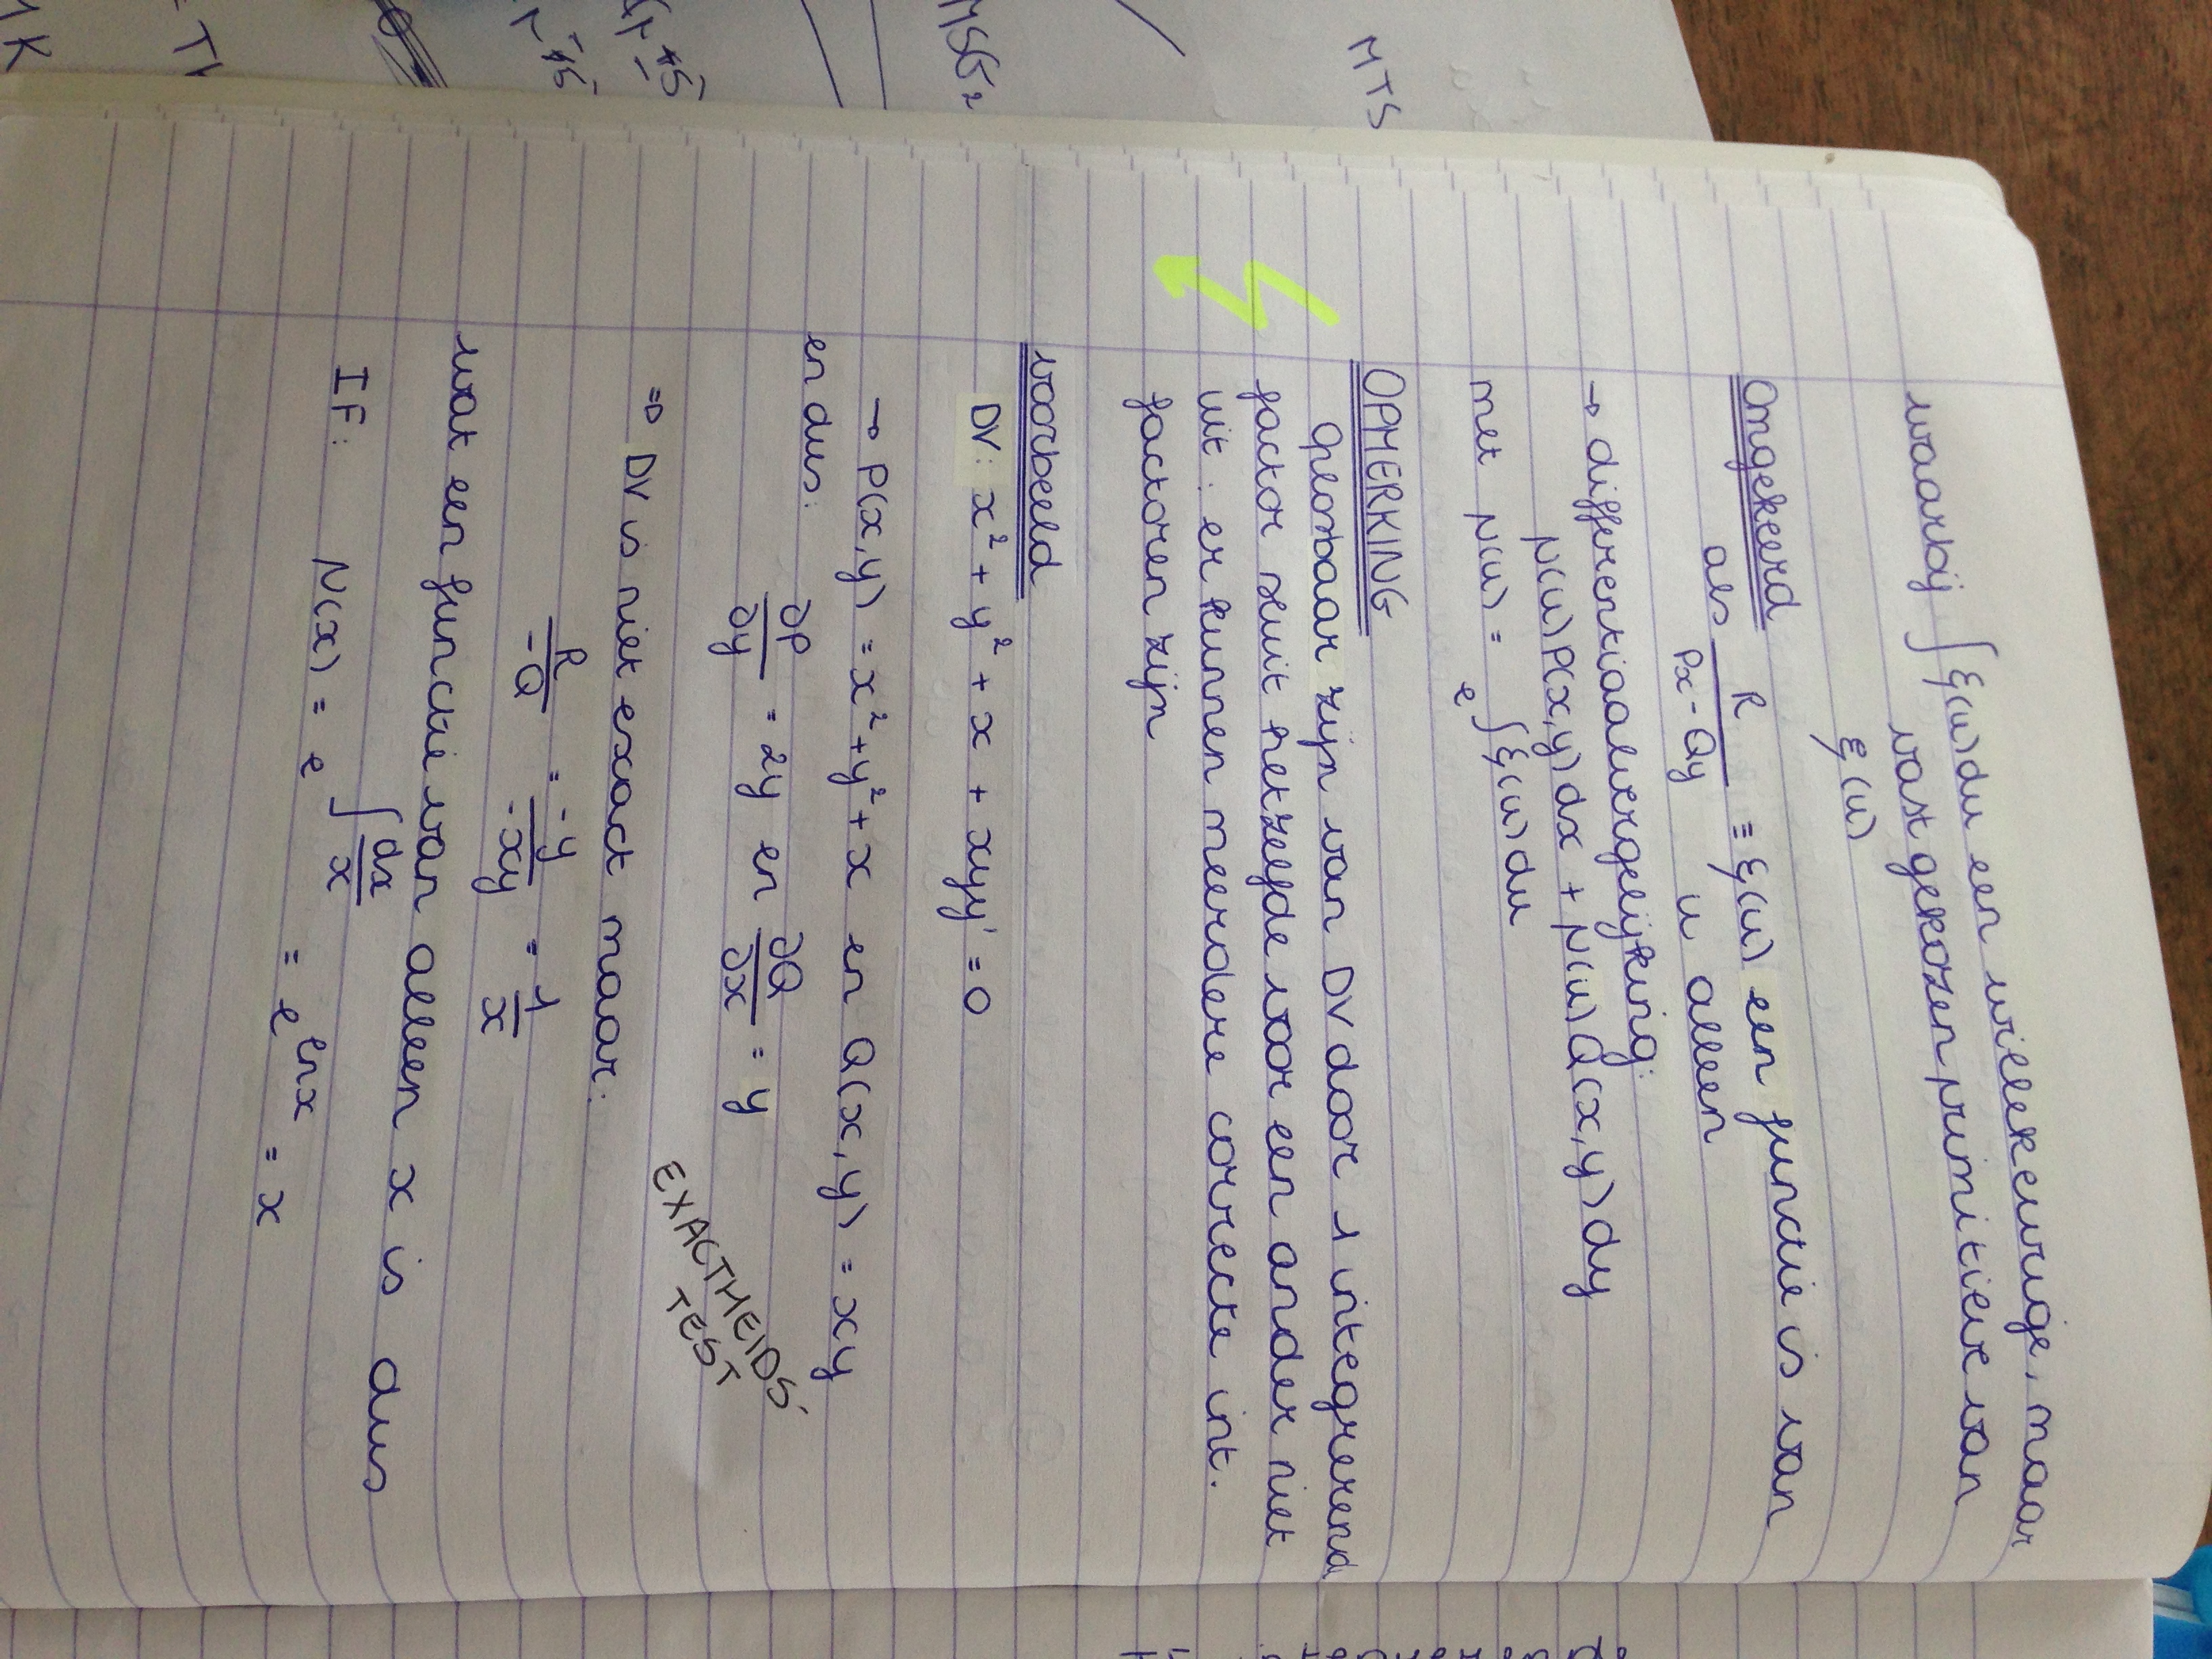 waarbij ∫ξ(u)du een willekeurige, maar
vast gekozen primitieve van
ξ(u)
Omgekeerd
als R/(Px - Qy) ≡ ξ(u) een functie is van
u alleen
→ differentiaalvergelijking:
μ(u)P(x,y)dx + μ(u)Q(x,y)dy
met μ(u) = e^∫ξ(u)du
OPMERKING
Oplosbaar zijn van DV door 1 integrerend
factor sluit hetzelfde voor een ander niet
uit : er kunnen meerdere correcte int.
factoren zijn
voorbeeld
DV: x² + y² + x + xyy' = 0
→ P(x,y) = x²+y²+x en Q(x,y) = xy
en dus:
∂P/∂y = 2y en ∂Q/∂x = y
EXACTHEIDS-
TEST
⇒ DV is niet exact maar:
R/-Q = -y/-xy = 1/x
wat een functie van alleen x is dus
IF: μ(x) = e^∫dx/x = e^lnx = x
MTS
MSG₂